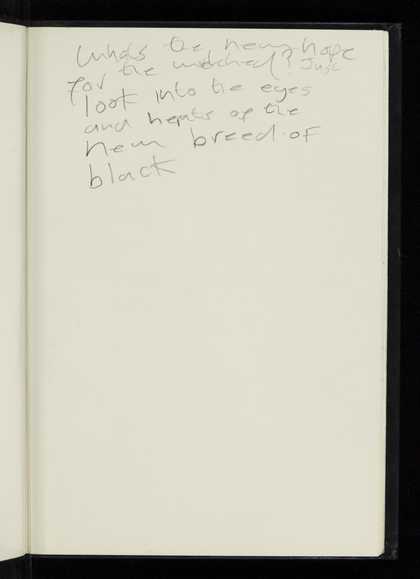 Who's the new hope
for the wretched? Just
look into the eyes
and hearts of the
new breed of
black